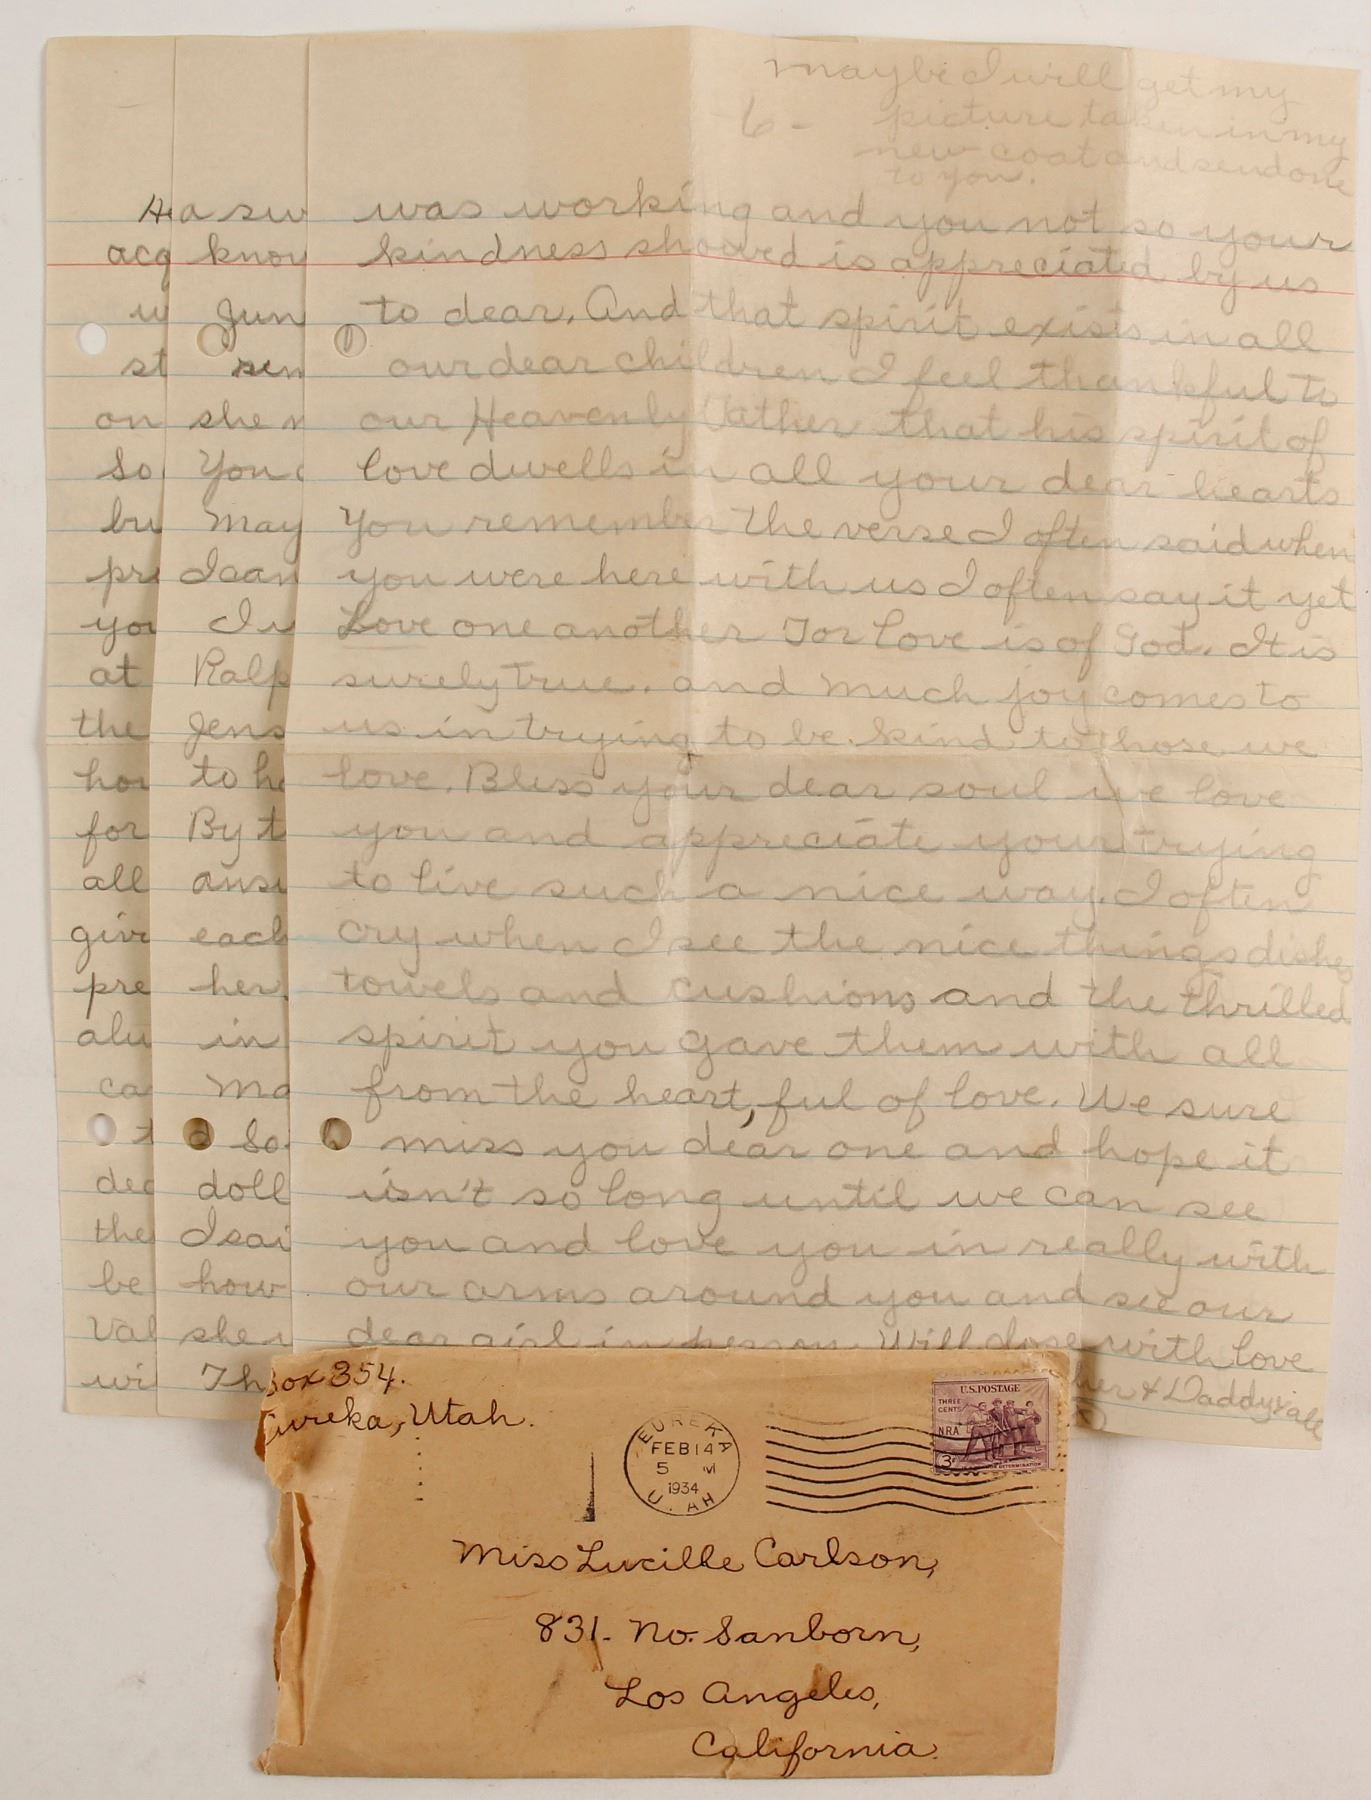 maybe I will get my
picture taken in my
new coat and send one
to you.
-6-
was working and you not so your
kindness showed is appreciated by us
to dear. And that spirit exists in all
our dear children I feel thankful to
our Heavenly Father that his spirit of
love dwells in all your dear hearts
You remember the verse I often said when
you were here with us I often say it yet
Love one another For Love is of God. It is
surely true. and much joy comes to
us in trying to be kind to those we
love. Bless your dear soul we love
you and appreciate your trying
to live such a nice way. I often
cry when I see the nice things dishes
towels and cushions and the thrilled
spirit you gave them with all
from the heart, ful of love. We sure
miss you dear one and hope it
isn't so long until we can see
you and love you in really with
our arms around you and see our
dear girl in person. Will close with love
& Daddy & all
a sw
know
Jun
sen
she
You
May
I can
I w
Ralp
Jens
to he
By t
ansi
each
her.
in
Ma
So
doll
I sai
how
she
Th
acq
w
st
on
So
bu
pre
you
at
the
hou
for
all
give
pre
alu
ca
t
dec
the
be
Val
wi
Box 354.
Eureka, Utah.
EUREKA
FEB 14
5 M
1934
UTAH
U.S. POSTAGE
THREE
CENTS
NRA
3¢
Miss Lucille Carlson,
831- No. Sanborn,
Los Angeles,
California.